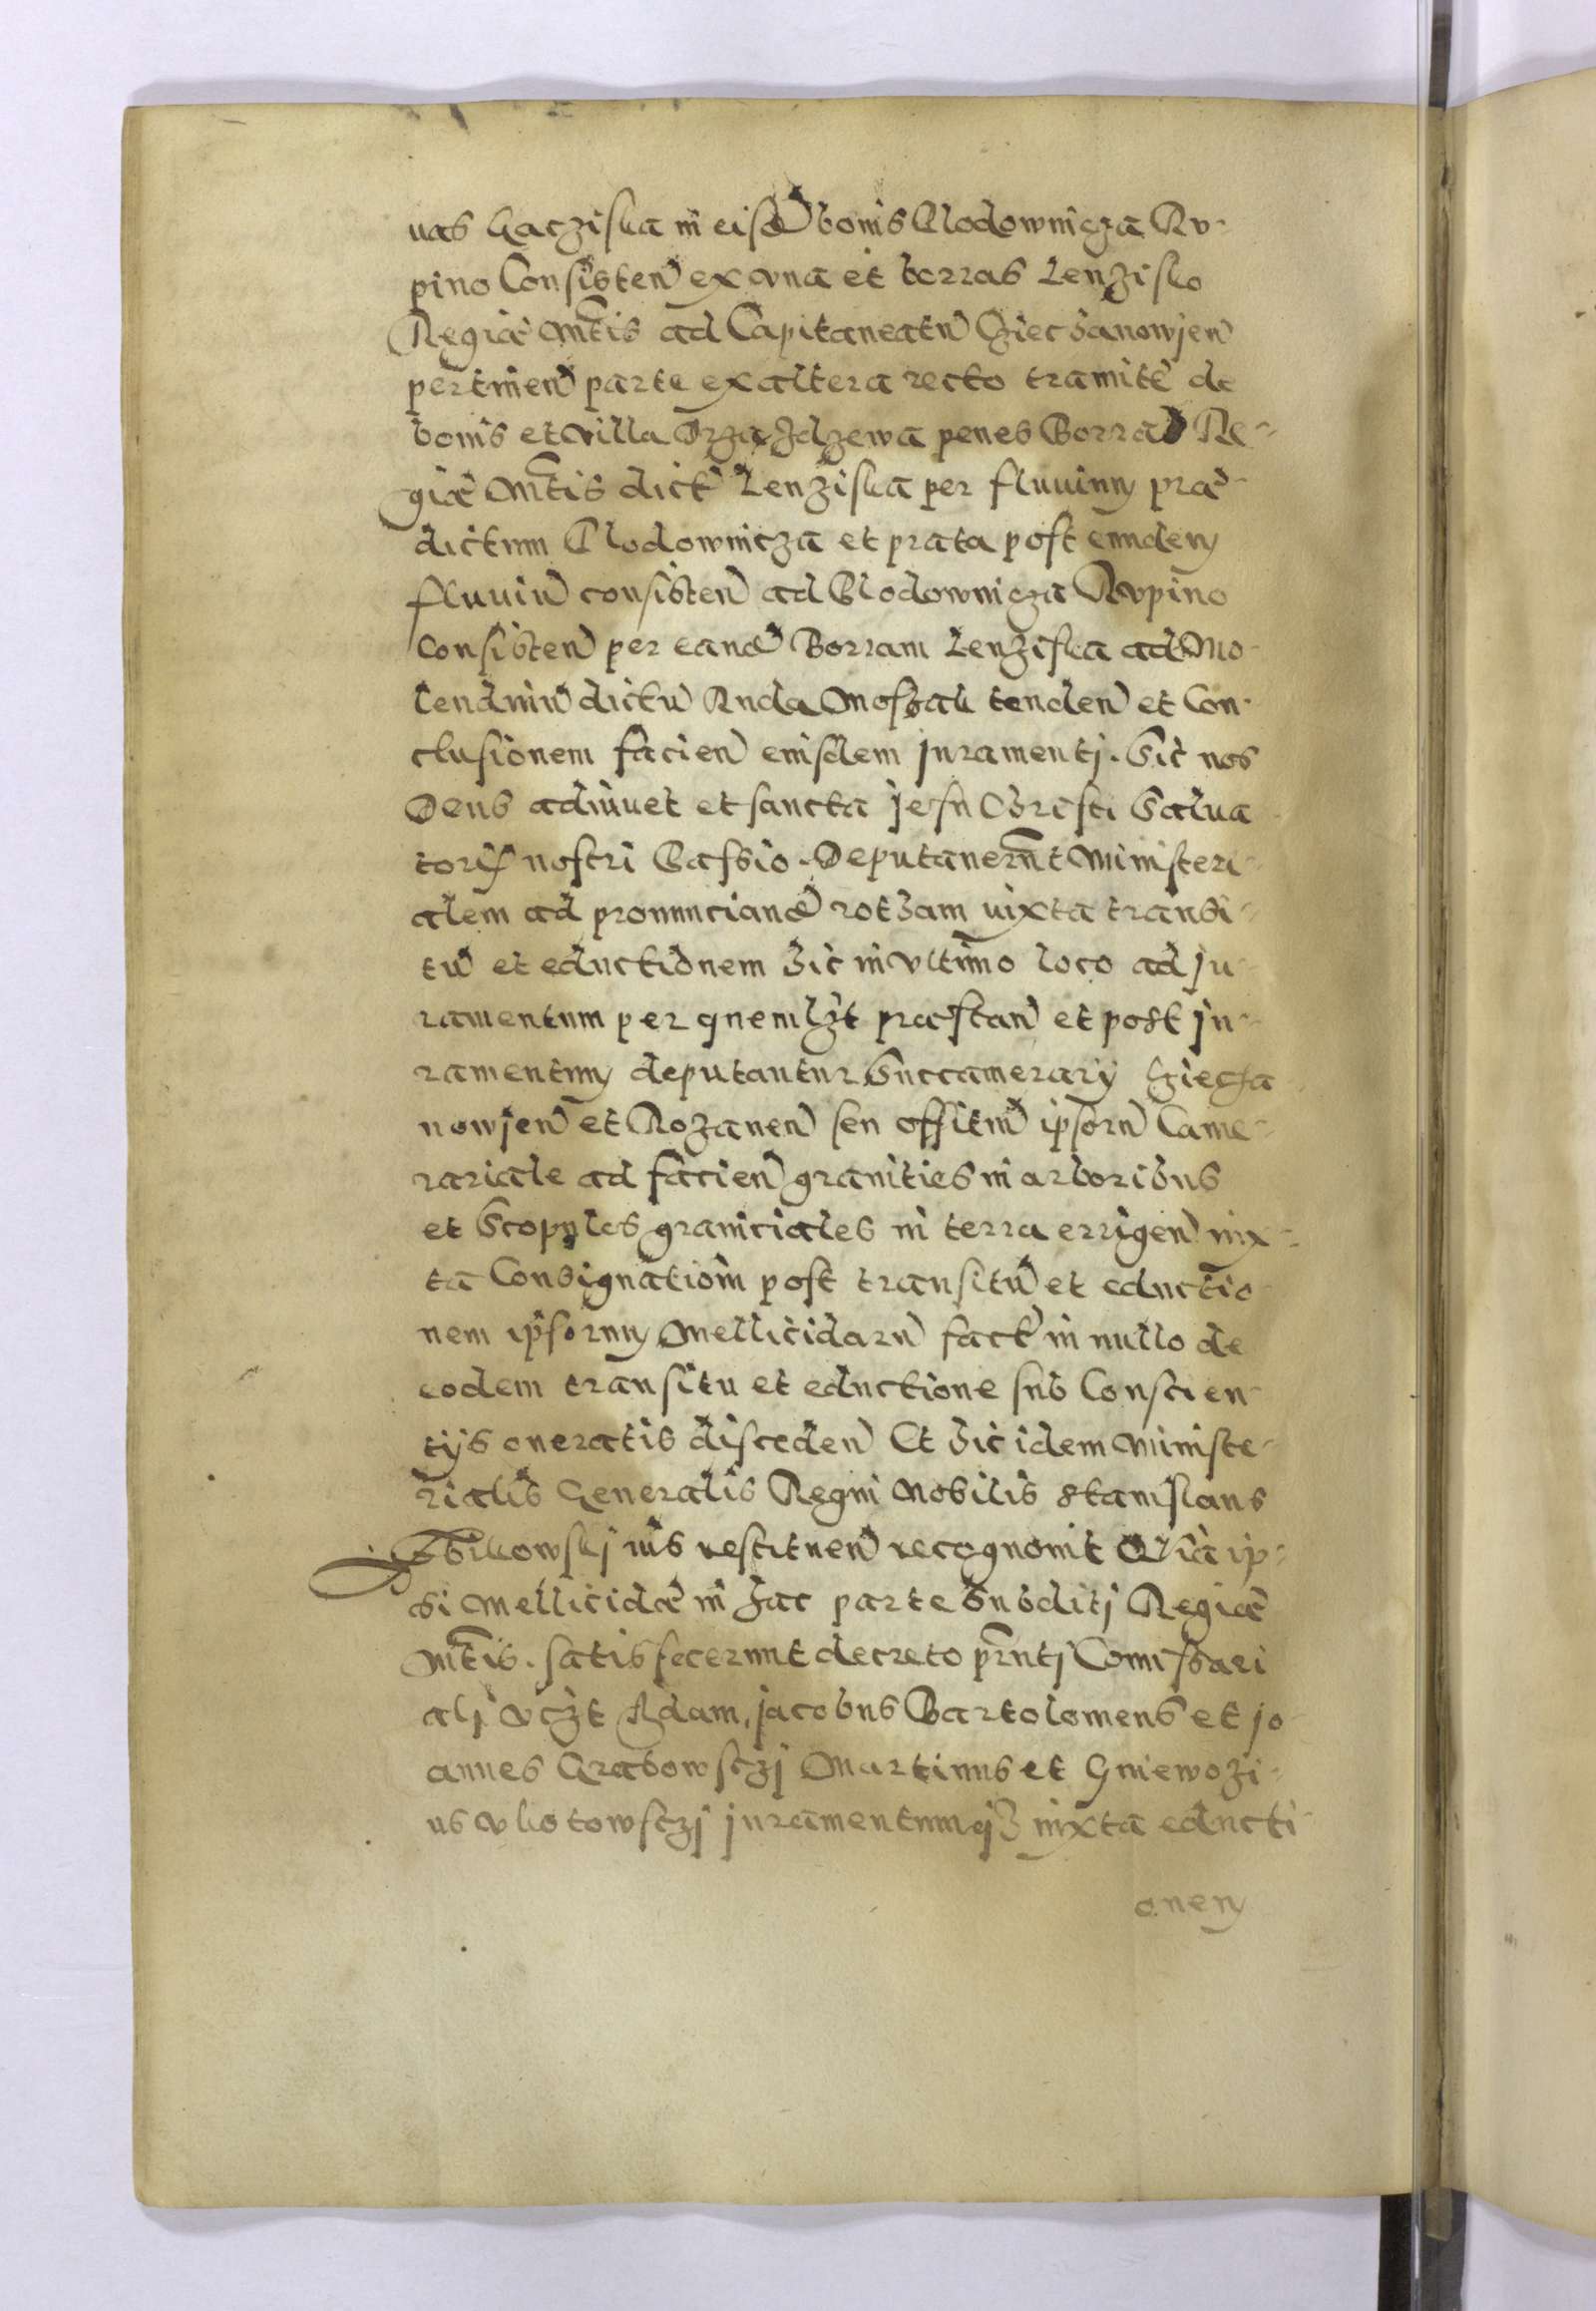 uas Gacziska in eisd bonis Plodownicza Ru-
pino Consisten ex vna et borras Lenzisko
Regiæ Mtis ad Capitaneatu Cziechanowien
pertinen parte ex altera recto tramite de
bonis et villa penes Borras Re-
giæ Mtis dict Lenziska per fluuium præ-
dictum Plodownicza et prata post eundem
fluuiu consisten ad Plodownicza Rupino
Consisten per eand Borram Lenziska ad Mo-
lendinu dictu Ruda tenden et Con-
clusionem facien eiusdem Juramentj. Sic nos
Deus adiuuet et sancta Jesu Christi Salua
toris nostri Passio. Deputauerunt Ministeri-
alem ad pronunciand rotham iuxta transi-
tu et eductionem hic in vltimo loco ad Ju-
ramentum per quemlzt præstan et post Ju-
ramentum deputantur Succamerarij Cziecha
nowien et Rozanen seu offitiu ipsoru Came-
rariale ad facien granities in arboribus
et Scopulos graniciales in terra errigen iux-
ta Consignatiom post transitu et eductio
nem ipsorum Mellicidaru fact in nullo de
eodem transitu et eductione sub Conscien-
tijs oneratis disceden Et hic idem Ministe-
rialis Generalis Regni Nobilis Stanislaus
ius restituen recognouit Quia ip-
si Mellicidæ in hac parte Subditj Regiæ
Mtis. satisfecerunt decreto prntj Comissari
alj vczt Adam, Jacobus Bartolomeus et Jo
annes Grabowsczj Martinus et Gniewozi-
us vkotowsczj Juramentumq3 iuxta educti-
onem